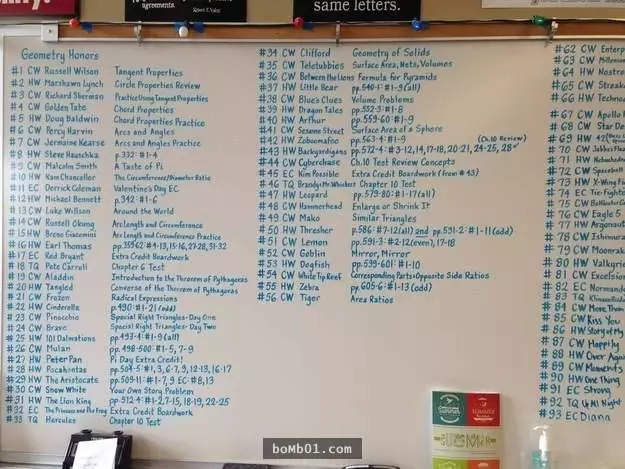 agreements.
same letters.
Geometry Honors
#1 CW Russell Wilson Tangent Properties
#2 HW Marshawn Lynch Circle Properties Review
#3 CW Richard Sherman Practice Using Tangent Properties
#4 CW Golden Tate Chord Properties
#5 HW Doug Baldwin Chord Properties Practice
#6 CW Percy Harvin Arcs and Angles
#7 CW Jermaine Kearse Arcs and Angles Practice
#8 HW Steve Hauschka p.332: #1-4
#9 CW Malcolm Smith A Taste of Pi
#10 HW Kam Chancellor The Circumference/Diameter Ratio
#11 EC Derrick Coleman Valentine's Day EC
#12 HW Michael Bennett p.342: #1-6
#13 CW Luke Willson Around the World
#14 CW Russell Okung Arc Length and Circumference
#15 HW Breno Giacomini Arc Length and Circumference Practice
#16 HW Earl Thomas
#17 EC Red Bryant Extra Credit Boardwork
#18 TQ Pete Carroll Chapter 6 Test
#19 CW Aladdin Introduction to the Theorem of Pythagoras
#20 HW Tangled Converse of the Theorem of Pythagoras
#21 CW Frozen Radical Expressions
#22 HW Cinderella p.490: #1-21 (odd)
#23 CW Pinocchio Special Right Triangles- Day One
#24 CW Brave Special Right Triangles- Day Two
#25 HW 101 Dalmations 493-4: #1-9 (all)
#26 CW Mulan pp. 498-500: #1-5, 7-9
#27 HW Peter Pan Pi Day Extra Credit!
#28 HW Pocahontas pp. 504-5: #1, 3, 6-7, 9, 12-13, 16-17
#29 HW The Aristocats pp. 509-11: #1-7, 9 EC: #8, 13
#30 CW Snow White Your Own Story Problem
#31 HW The Lion King pp. 512-4: #1-2, 7-15, 18-19, 22-25
#32 EC The Princess and the Frog Extra Credit Boardwork
#33 TQ Hercules Chapter 10 Test
#34 CW Clifford Geometry of Solids
#35 CW Teletubbies Surface Area, Nets, Volumes
#36 CW Between the Lions Formula for Pyramids
#37 HW Little Bear pp. 540-1: #1-9 (all)
#38 CW Blues Clues Volume Problems
#39 HW Dragon Tales pp. 532-3: #1-8
#40 HW Arthur pp. 559-60: #1-9
#41 CW Sesame Street Surface Area of a Sphere
#42 HW Zoboomafoo pp. 563-4: #1-9
#43 HW Backyardigans pp. 572-4: #3-12, 14, 17-18, 20-21, 24-25, 28 (Ch.10 Review)
#44 CW Cyberchase Ch.10 Test Review Concepts
#45 EC Kim Possible Extra Credit Boardwork (from #43)
#46 TQ Brandy & Mr. Whiskers Chapter 10 Test
#47 HW Leopard pp. 579-80: #1-17 (all)
#48 CW Hammerhead Enlarge or Shrink It
#49 CW Mako Similar Triangles
#50 HW Thresher p. 586: #7-12 (all) and pp. 591-2: #1-11 (odd)
#51 CW Lemon pp. 591-3: #2-12 (even), 17-18
#52 CW Goblin Mirror, Mirror
#53 HW Dogfish pp. 599-601: #1-10
#54 CW White Tip Reef Corresponding Parts & Opposite Side Ratios
#55 HW Zebra pp. 605-6: #1-13 (odd)
#56 CW Tiger Area Ratios
#62 CW Enterp
#63 CW Millennium
#64 HW Nostro
#65 CW Streak
#66 HW Techno
#67 CW Apollo
#68 CW Star De
#69 HW
#70 CW
#71 HW
#72 CW Spaceball
#73 HW X-Wing
#74 EC Tie-Fighter
#75 CW
#76 CW Eagle 5
#77 HW Argonaut
#78 CW Ishimura
#79 CW Moonrak
#80 HW Valkyri
#81 CW Excelsior
#82 EC Normand
#83 TQ
#84 CW More Than
#85 CW Kiss You
#86 HW Story of My
#87 CW Happily
#88 HW Over Again
#89 CW Moments
#90 HW One Thing
#91 EC Strong
#92 TQ Up All Night
#93 EC Diana
boMb01.com